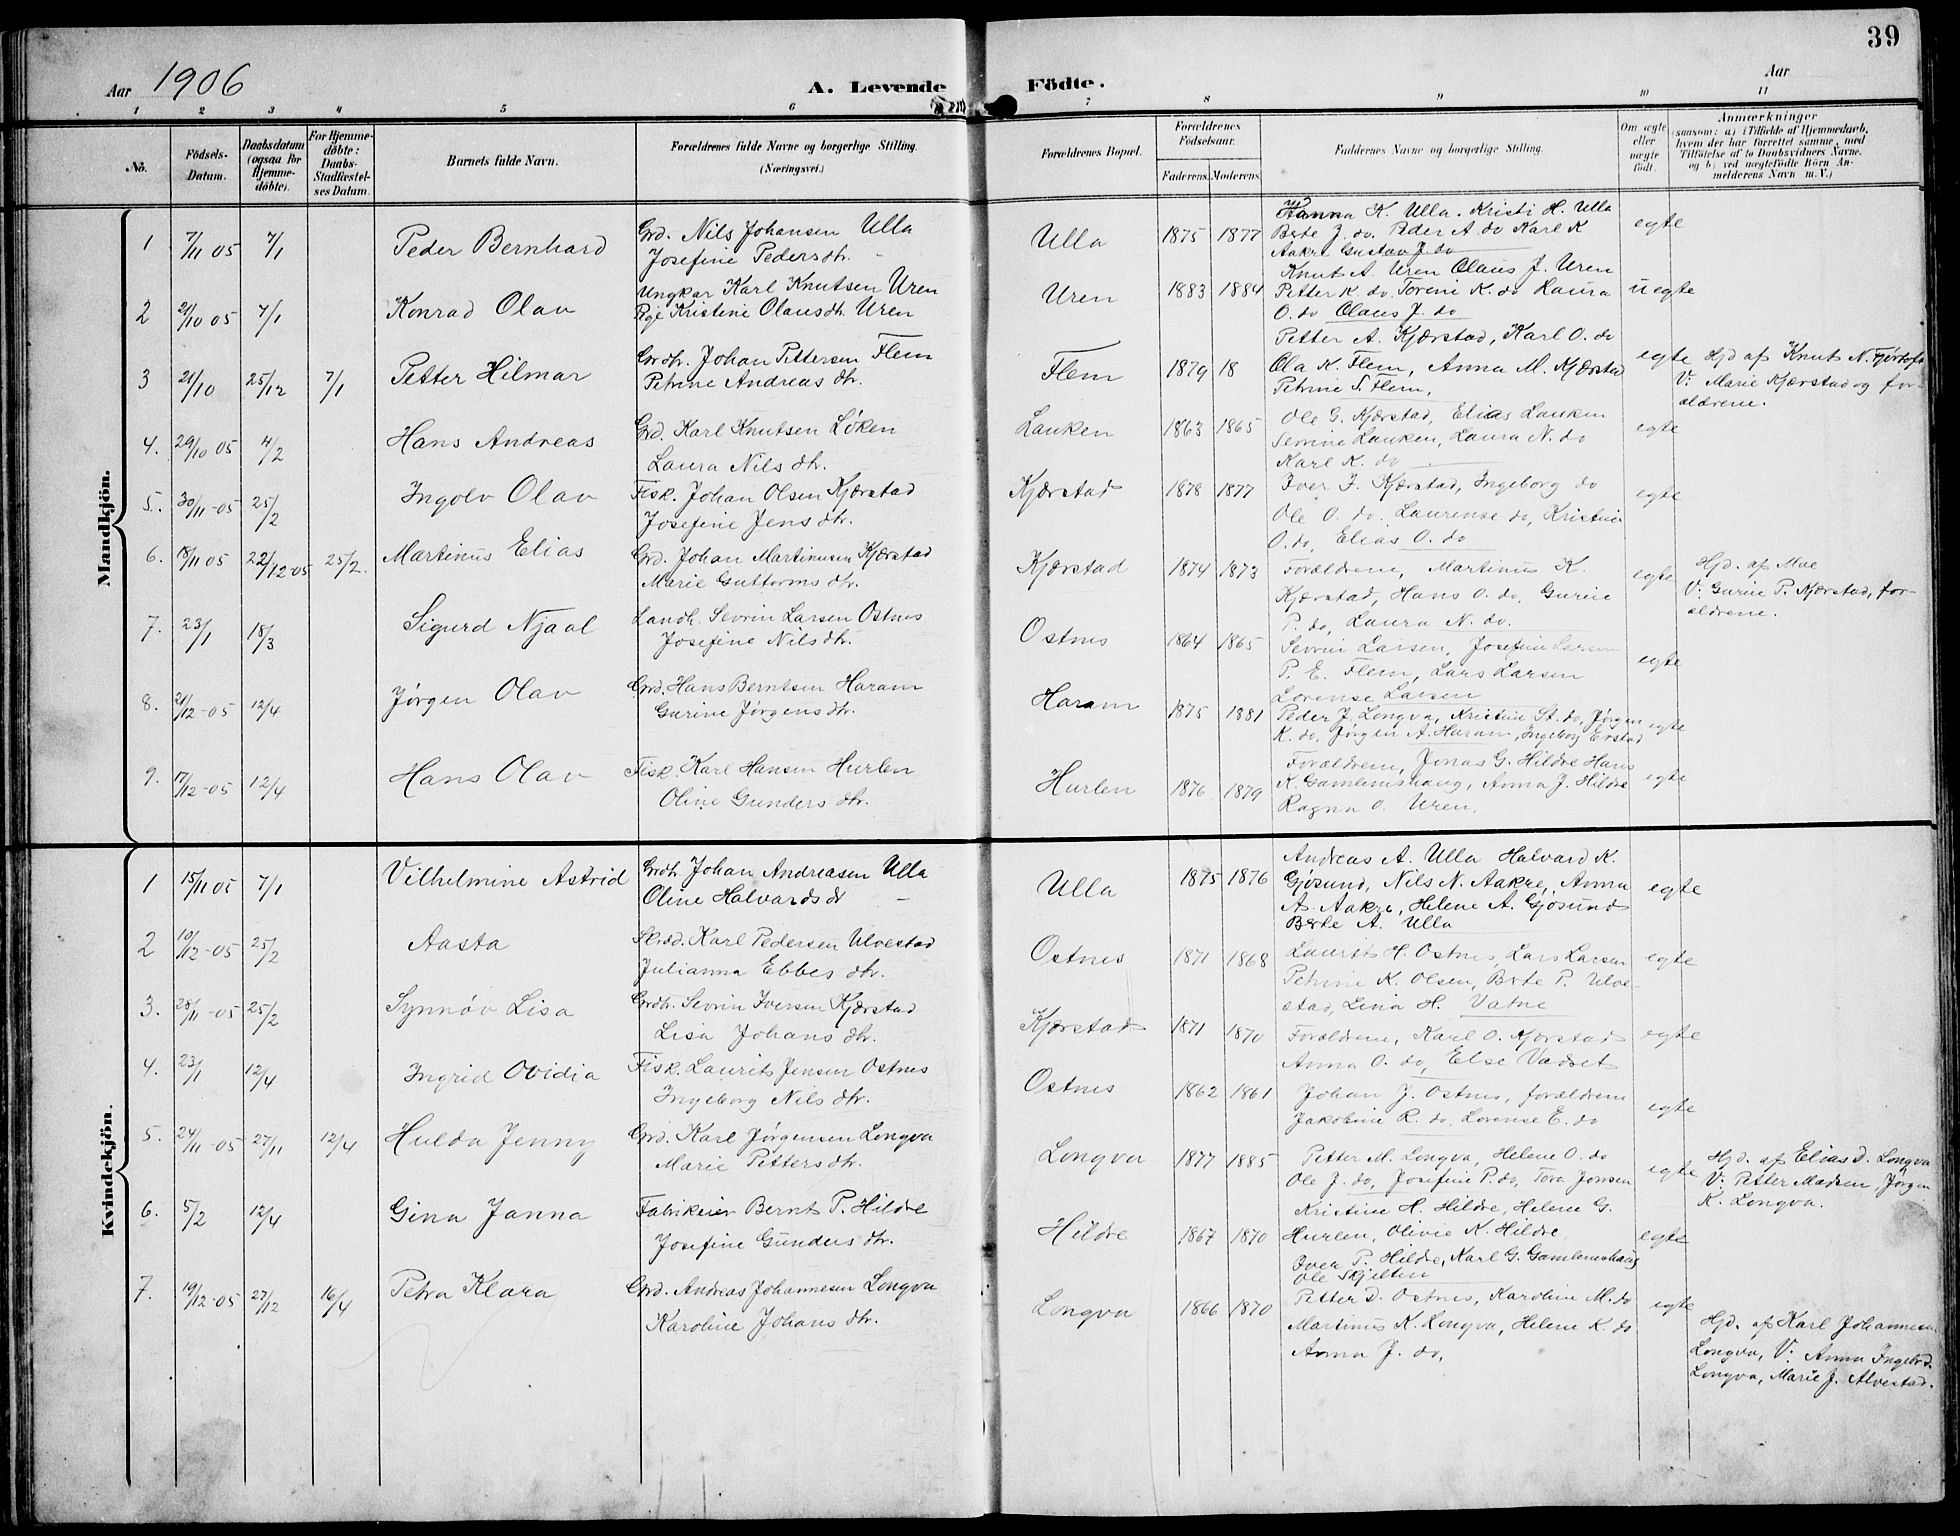 39
Aar 1906 A. Levende Födte. Aar
1 2 3 4 5 6 7 8 9 10 11
No. Födsels-Datum. Daabsdatum (ogsaa for Hjemme-döbte). For Hjemme-döbte: Daabs-Stadfæstel-ses Datum. Barnets fulde Navn. Forældrenes fulde Navne og borgerlige Stilling. (Næringsvei.) Forældrenes Bopæl. Forældrenes Födselsaar. Faderens. Moderens. Faddernes Navne og borgerlige Stilling. Om ægte eller uægte födt. Anmærkninger (saasom: a) i Tilfælde af Hjemmedaab, hvem der har forrettet samme, med Tilföielse af to Daabsvidners Navne. og b) ved uægtefödte Börn An-melderens Navn m. V.)
Mandkjön.
1 7/11 05 7/1 Peder Bernhard Grd. Nils Johansen Ulla Ulla 1875 1877 Hanna K. Ulla. Kristi H. Ulla egte
Josefine Pedersdtr. - Berte J. do. Peder A. do Karl K
Aakre Gustav J. do
2 21/10 05 7/1 Konrad Olav Ungkar Karl Knutsen Uren Uren 1883 1884 Knut A. Uren Olaus J. Uren uegte
Pige Kristine Olausdtr. Uren Petter K. do. Torene K. do Laura
O. do Olaus J. do
3 21/10 25/12 7/1 Petter Hilmar Grdbr. Johan Pettersen Flem Flem 1879 18 Petter A. Kjærstad, Karl O. do egte Hjd af Knut N. Fjørtoft
Petrine Andreasdtr. Ola K. Flem, Anna M. Kjærstad V: Marie Kjærstad og for-
Petrine S. Flem, ældrene.
4. 29/10 05 4/2 Hans Andreas Grd. Karl Knutsen Løken Lauken 1863 1865 Ole G. Kjærstad, Elias Lauken egte
Laura Nilsdtr. Sevrine Lauken, Laura N. do
Karl K. do
5. 30/11-05 25/2 Ingolv Olav Fisk. Johan Olsen Kjærstad Kjærstad 1878 1877 Iver J. Kjærstad, Ingeborg do egte
Josefine Jensdtr. Ole O. do. Laurense do, Kristine
O. do, Elias O. do
6. 18/11 05 22/12-05 25/2. Martinus Elias Grd. Johan Martinusen Kjærstad Kjærstad 1874 1873 Forældrene, Martinus K. egte Hjd. af Moe
Marie Guttormsdtr. Kjærstad, Hans O. do, Gurine V: Gurine P. Kjærstad, for-
P. do, Laura N. do. ældrene.
7. 23/1 18/3 Sigurd Njaal Landh. Sevrin Larsen Ostnes Ostnes 1864 1865 Sevrin Larsen, Josefine Larsen egte
Josefine Nilsdtr. P. E. Flem, Lars Larsen
Lorense Larsen
8. 21/12-05 12/4 Jørgen Olav Grd. Hans Berntsen Haram Haram 1875 1881 Peder J. Longva, Kristine St. do, Jørgen egte
Gurine Jørgensdtr. K. do, Jørgen A. Haram, Ingeborg Erstad
9. 17/12-05 12/4 Hans Olav Fisk. Karl Hansen Hurlen Hurlen 1876 1879 Forældrene, Jonas G. Hildre Hans egte
Oline Gundersdtr. K. Gamlemshaug, Anna J. Hildre
Ragna O. Uren.
Kvindekjön.
1 15/11 05 7/1 Vilhelmine Astrid Grdb. Johan Andreasen Ulla Ulla 1875 1876 Andreas A. Ulla Halvard K. egte
Oline Halvardsdt - Gjøsund, Nils N. Aakre, Anna
A. Aakre, Helene A. Gjøsund
Berte A. Ulla
2 10/12-05 25/2 Aasta Skrædd. Karl Pedersen Ulvestad Ostnes 1871 1868 Laurits H. Ostnes, Lars Larsen egte
Julianna Ebbesdtr. Petrine K. Olsen, Berte P. Ulve-
stad, Lina H. Vatne
3. 28/11-05 25/2 Synnøv Lisa Grdbr. Sevrin Iversen Kjærstad Kjærstad 1871 1870 Forældrene, Karl O. Kjærstad egte
Lisa Johansdtr. Anna O. do, Else Vadset
4. 23/1 12/4 Ingrid Ovidia Fisk. Laurits Jensen Ostnes Ostnes 1862 1861 Johan J. Ostnes, forældrene egte
Ingeborg Nilsdtr. Jakobine R. do, Lorense E. do
5. 24/11-05 27/11 12/4 Hulda Jenny Grd. Karl Jørgensen Longva Longva 1877 1885 Petter M. Longva, Helene O. do egte Hjd. af Elias D. Longva
Marie Pettersdtr. Ole J. do, Josefine P. do, Tora Jonsen V: Petter Madsen, Jørgen
K. Longva.
6. 5/2 12/4 Gina Janna Fabrikeier Bernt P. Hildre Hildre 1867 1870 Kristine H. Hildre, Helene G. egte
Josefine Gundersdtr. Hurlen, Olivie K. Hildre
Iver P. Hildre, Karl G. Gamlemshaug
Ole Skjelten
7. 19/12-05 27/12 16/4 Petra Klara Grd. Andreas Johannesen Longva Longva 1866 1870 Petter D. Ostnes, Karoline M. do egte Hjd. af Karl Johannesen
Karoline Johansdtr. Martinus K. Longva, Helene K. do Longva, V: Anna Ingebrd.
Anna J. do, Longva, Marie J. Alvestad.